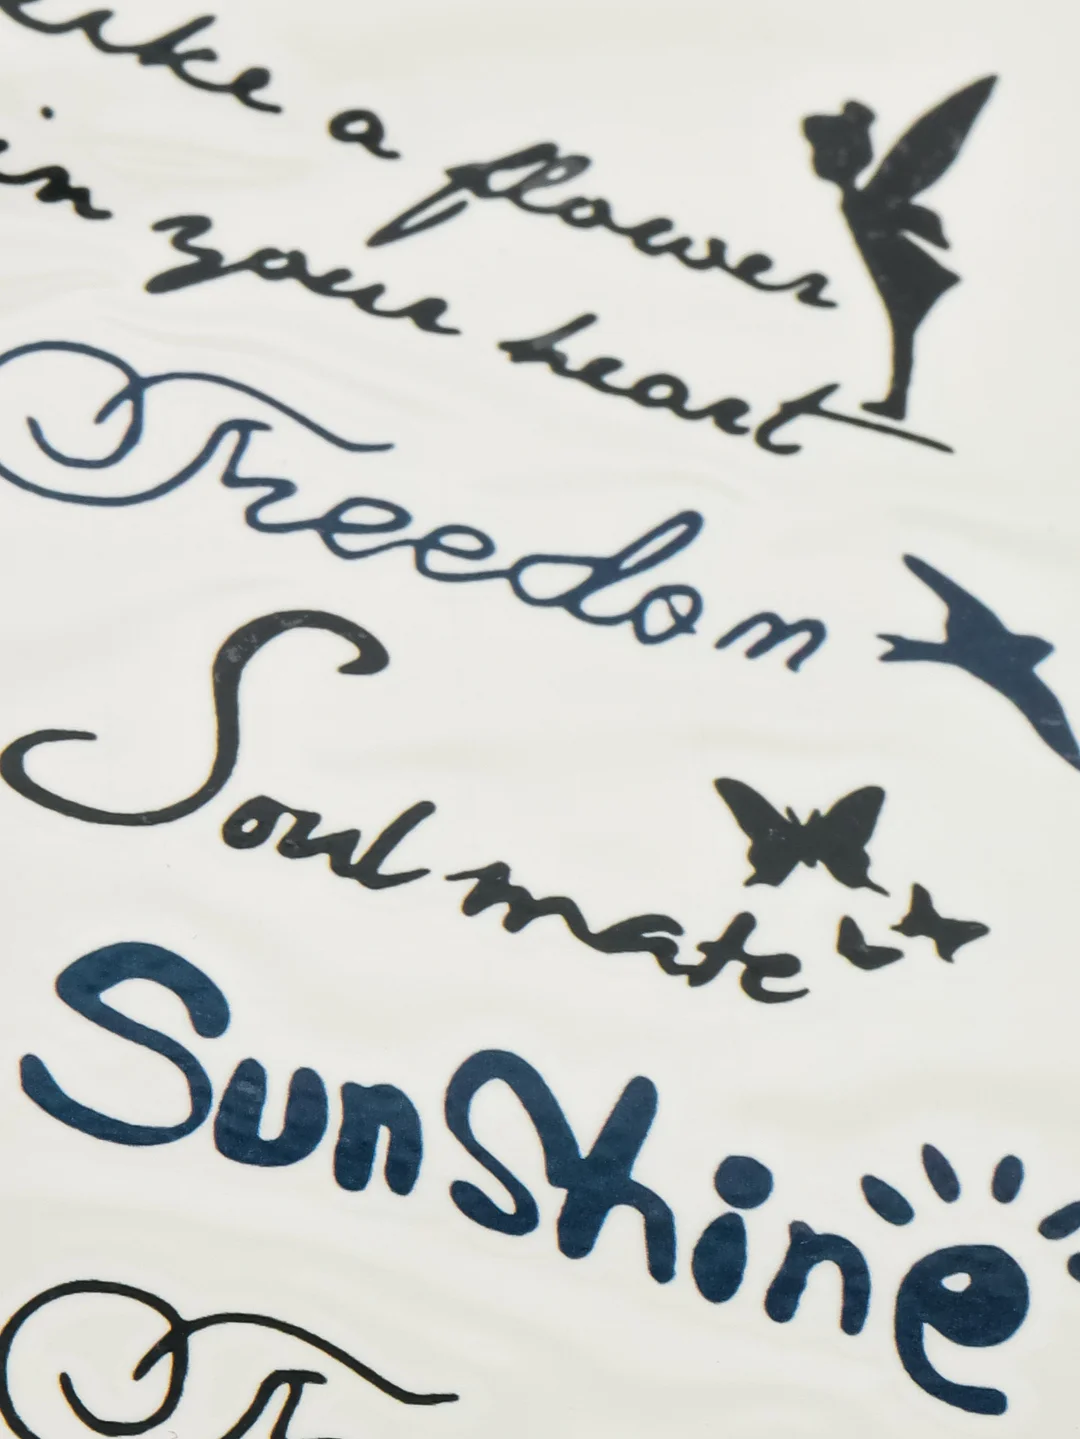 a flower
in your heart
Freedom
Soul mate
SunShine